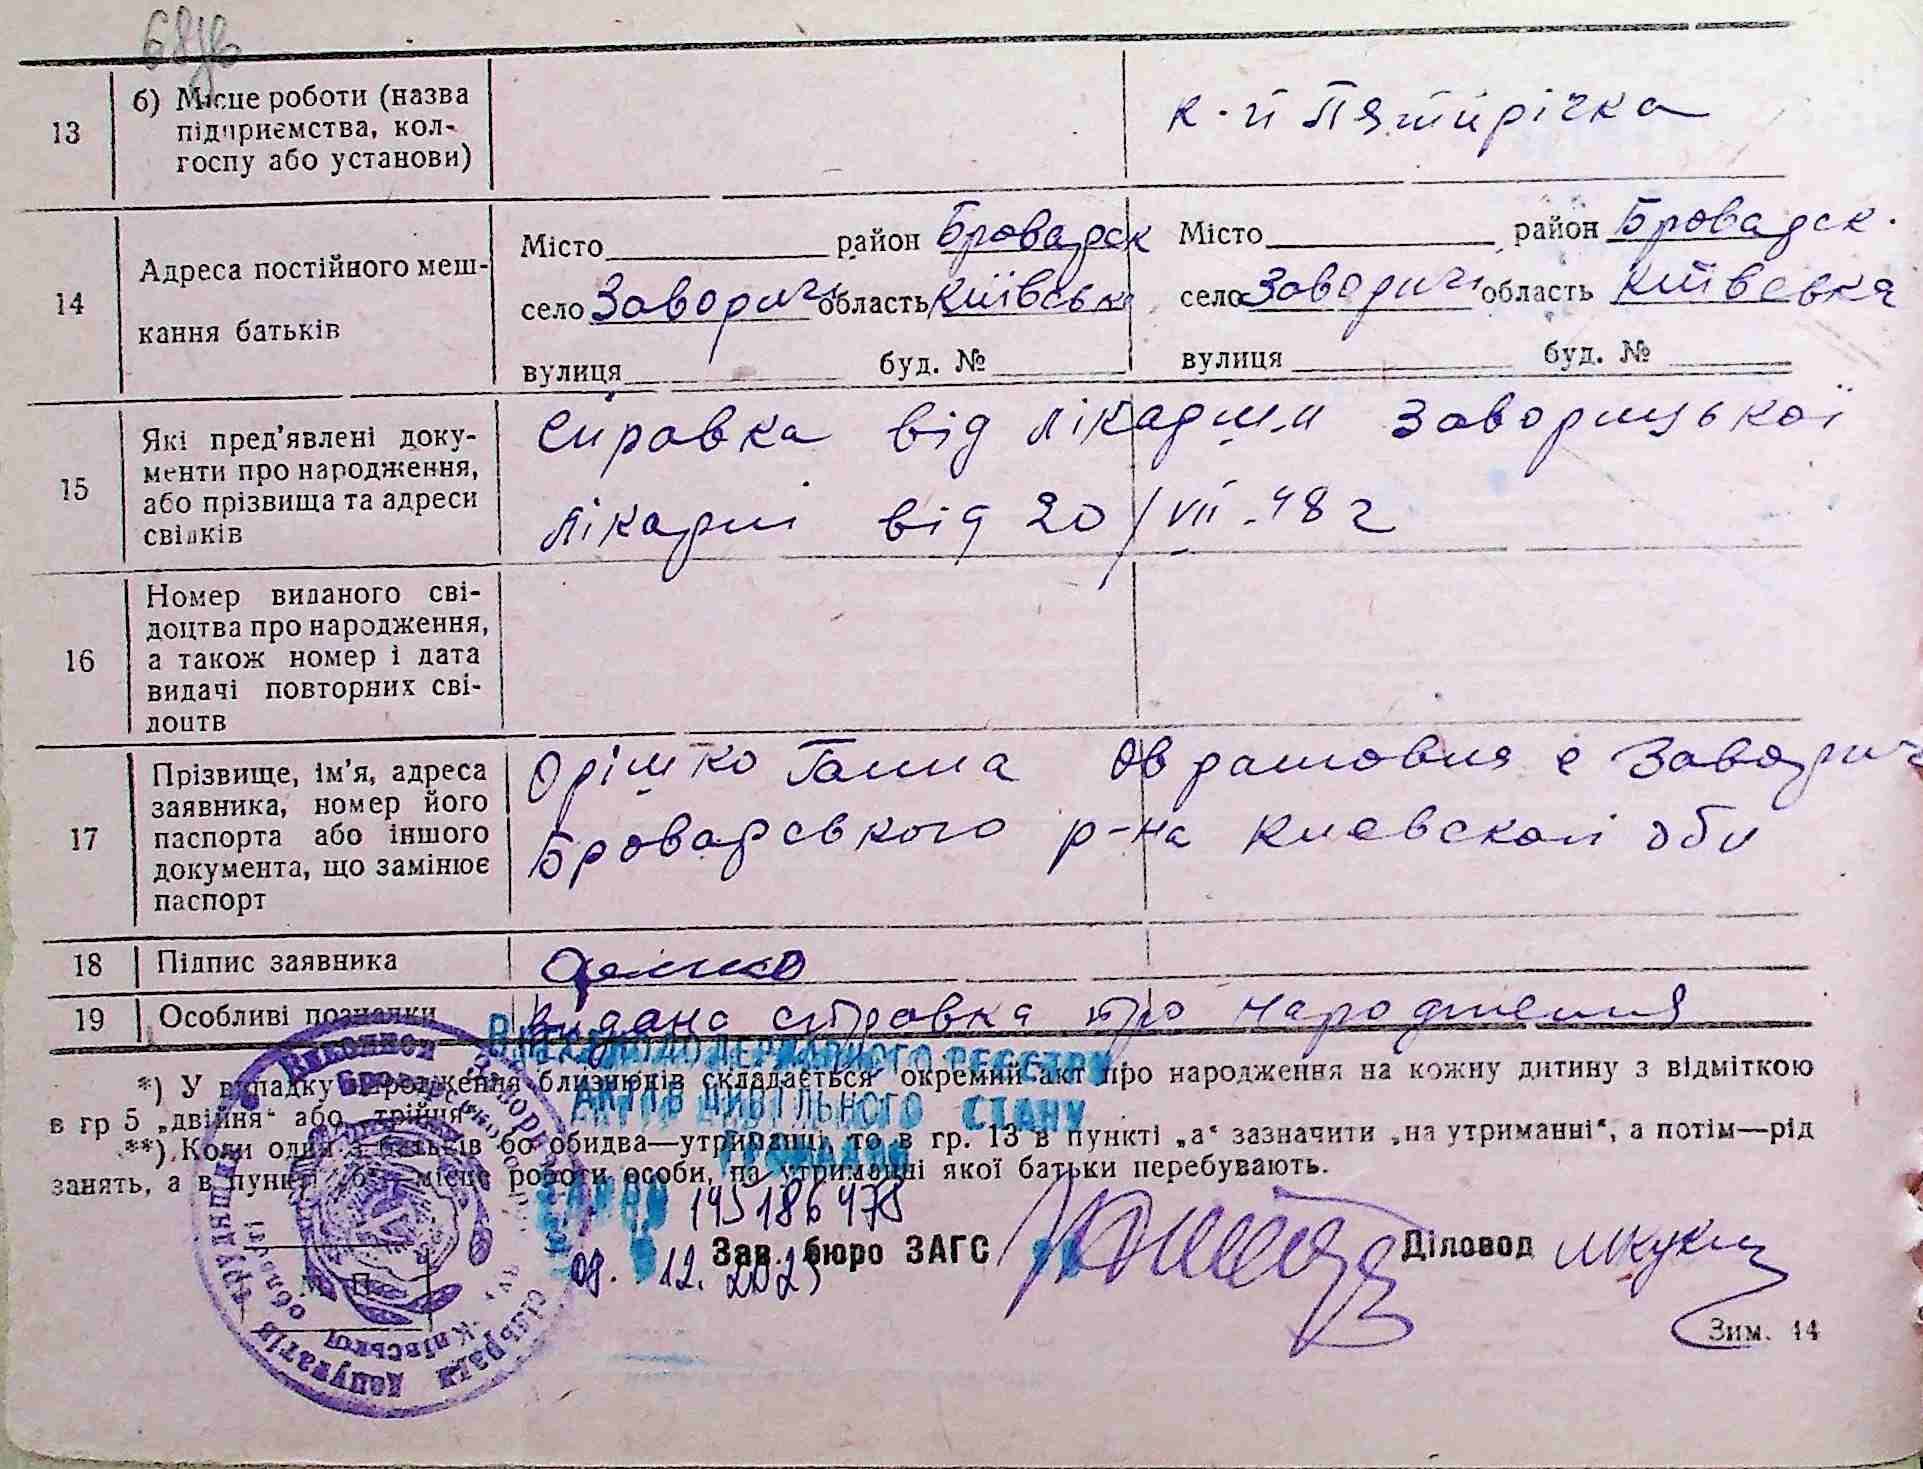 13
б) Місце роботи (назва
підприємства, кол-
госпу або установи)
к-п Пятирічка
14
Адреса постійного меш-
кання батьків
Місто район Броварск
село Заворичі область Київська
вулиця буд. №
Місто район Броварск.
село Заворичі область Київська
вулиця буд. №
15
Які пред'явлені доку-
менти про народження,
або прізвища та адреси
свідків
Справка від лікарни Заворицької
лікарні від 20/VII.48 г
16
Номер виданого сві-
доцтва про народження,
а також номер і дата
видачі повторних сві-
доцтв
17
Прізвище, ім'я, адреса
заявника, номер його
паспорта або іншого
документа, що замінює
паспорт
Орішко Ганна с Заворич
Броварського р-на Киевской обл
18
Підпис заявника
19
Особливі позначки
Видана справка про народження
*) У випадку народження близнюців складається окремий акт про народження на кожну дитину з відміткою
в гр 5 „двійня“ або „трійня“
**) Коли один з батьків бо обидва—утриманці, то в гр. 13 в пункті „а“ зазначити „на утриманні“, а потім—рід
занять, а в пункті „б“—місце роботи особи, на утриманні якої батьки перебувають.
ВНЕСЕНО ДО ДЕРЖАВНОГО РЕЄСТРУ
АКТІВ ЦИВІЛЬНОГО СТАНУ
ГРОМАДЯН
08.12.2023
Зав. бюро ЗАГС
Діловод
М. П.
Зим. 44